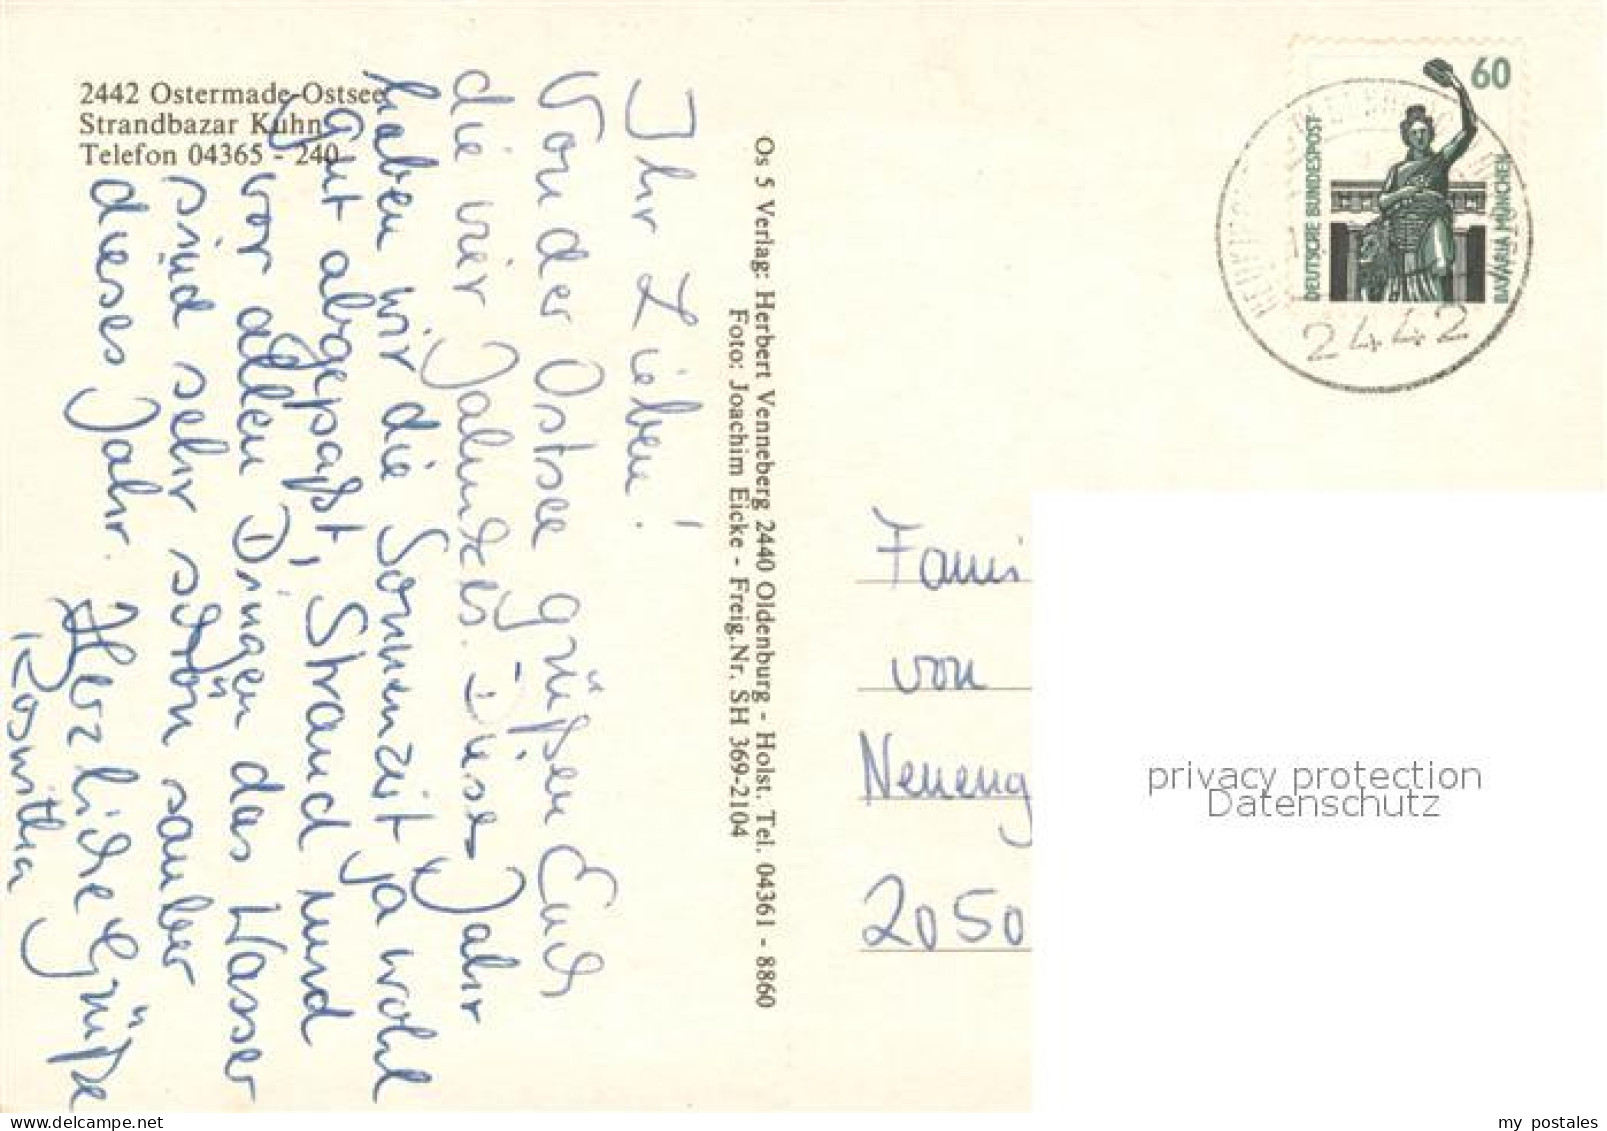 2442 Ostermade-Ostsee
Strandbazar Kuhn
Telefon 04365 - 240
Ihr Lieben!
Von der Ostsee grüßen Euch
die vier Jahnkes. Dieses Jahr
haben wir die Sonnenzeit ja wohl
gut abgepaßt, Strand und
vor allen Dingen das Wasser
sind sehr schön sauber
dieses Jahr. Herzliche Grüße
Roswitha
Os 5 Verlag: Herbert Venneberg 2440 Oldenburg - Holst. Tel. 04361 - 8860
Foto: Joachim Eicke - Freig.Nr. SH 369-2104
60
DEUTSCHE BUNDESPOST
BAVARIA MÜNCHEN
2442
Fami
von
Neueng
2050
privacy protection
Datenschutz
my postales